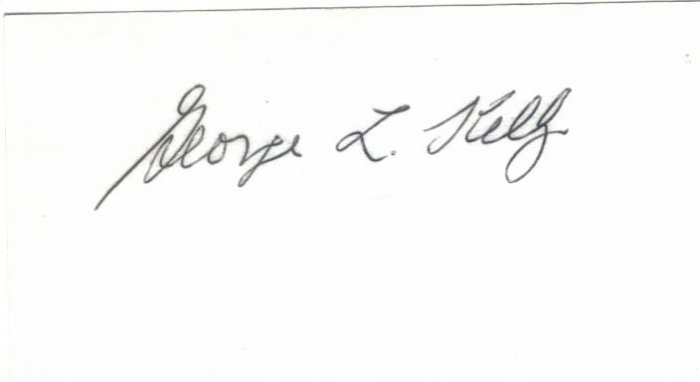 George L. Kelly